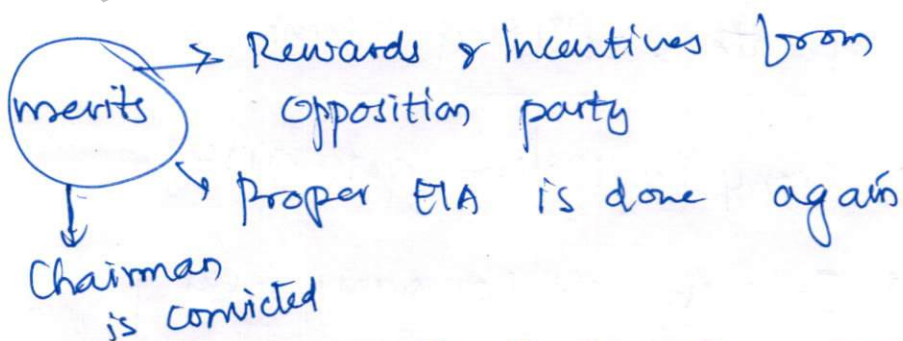 merits
Rewards & Incentives from
Opposition party
Proper EIA is done again
Chairman
is convicted